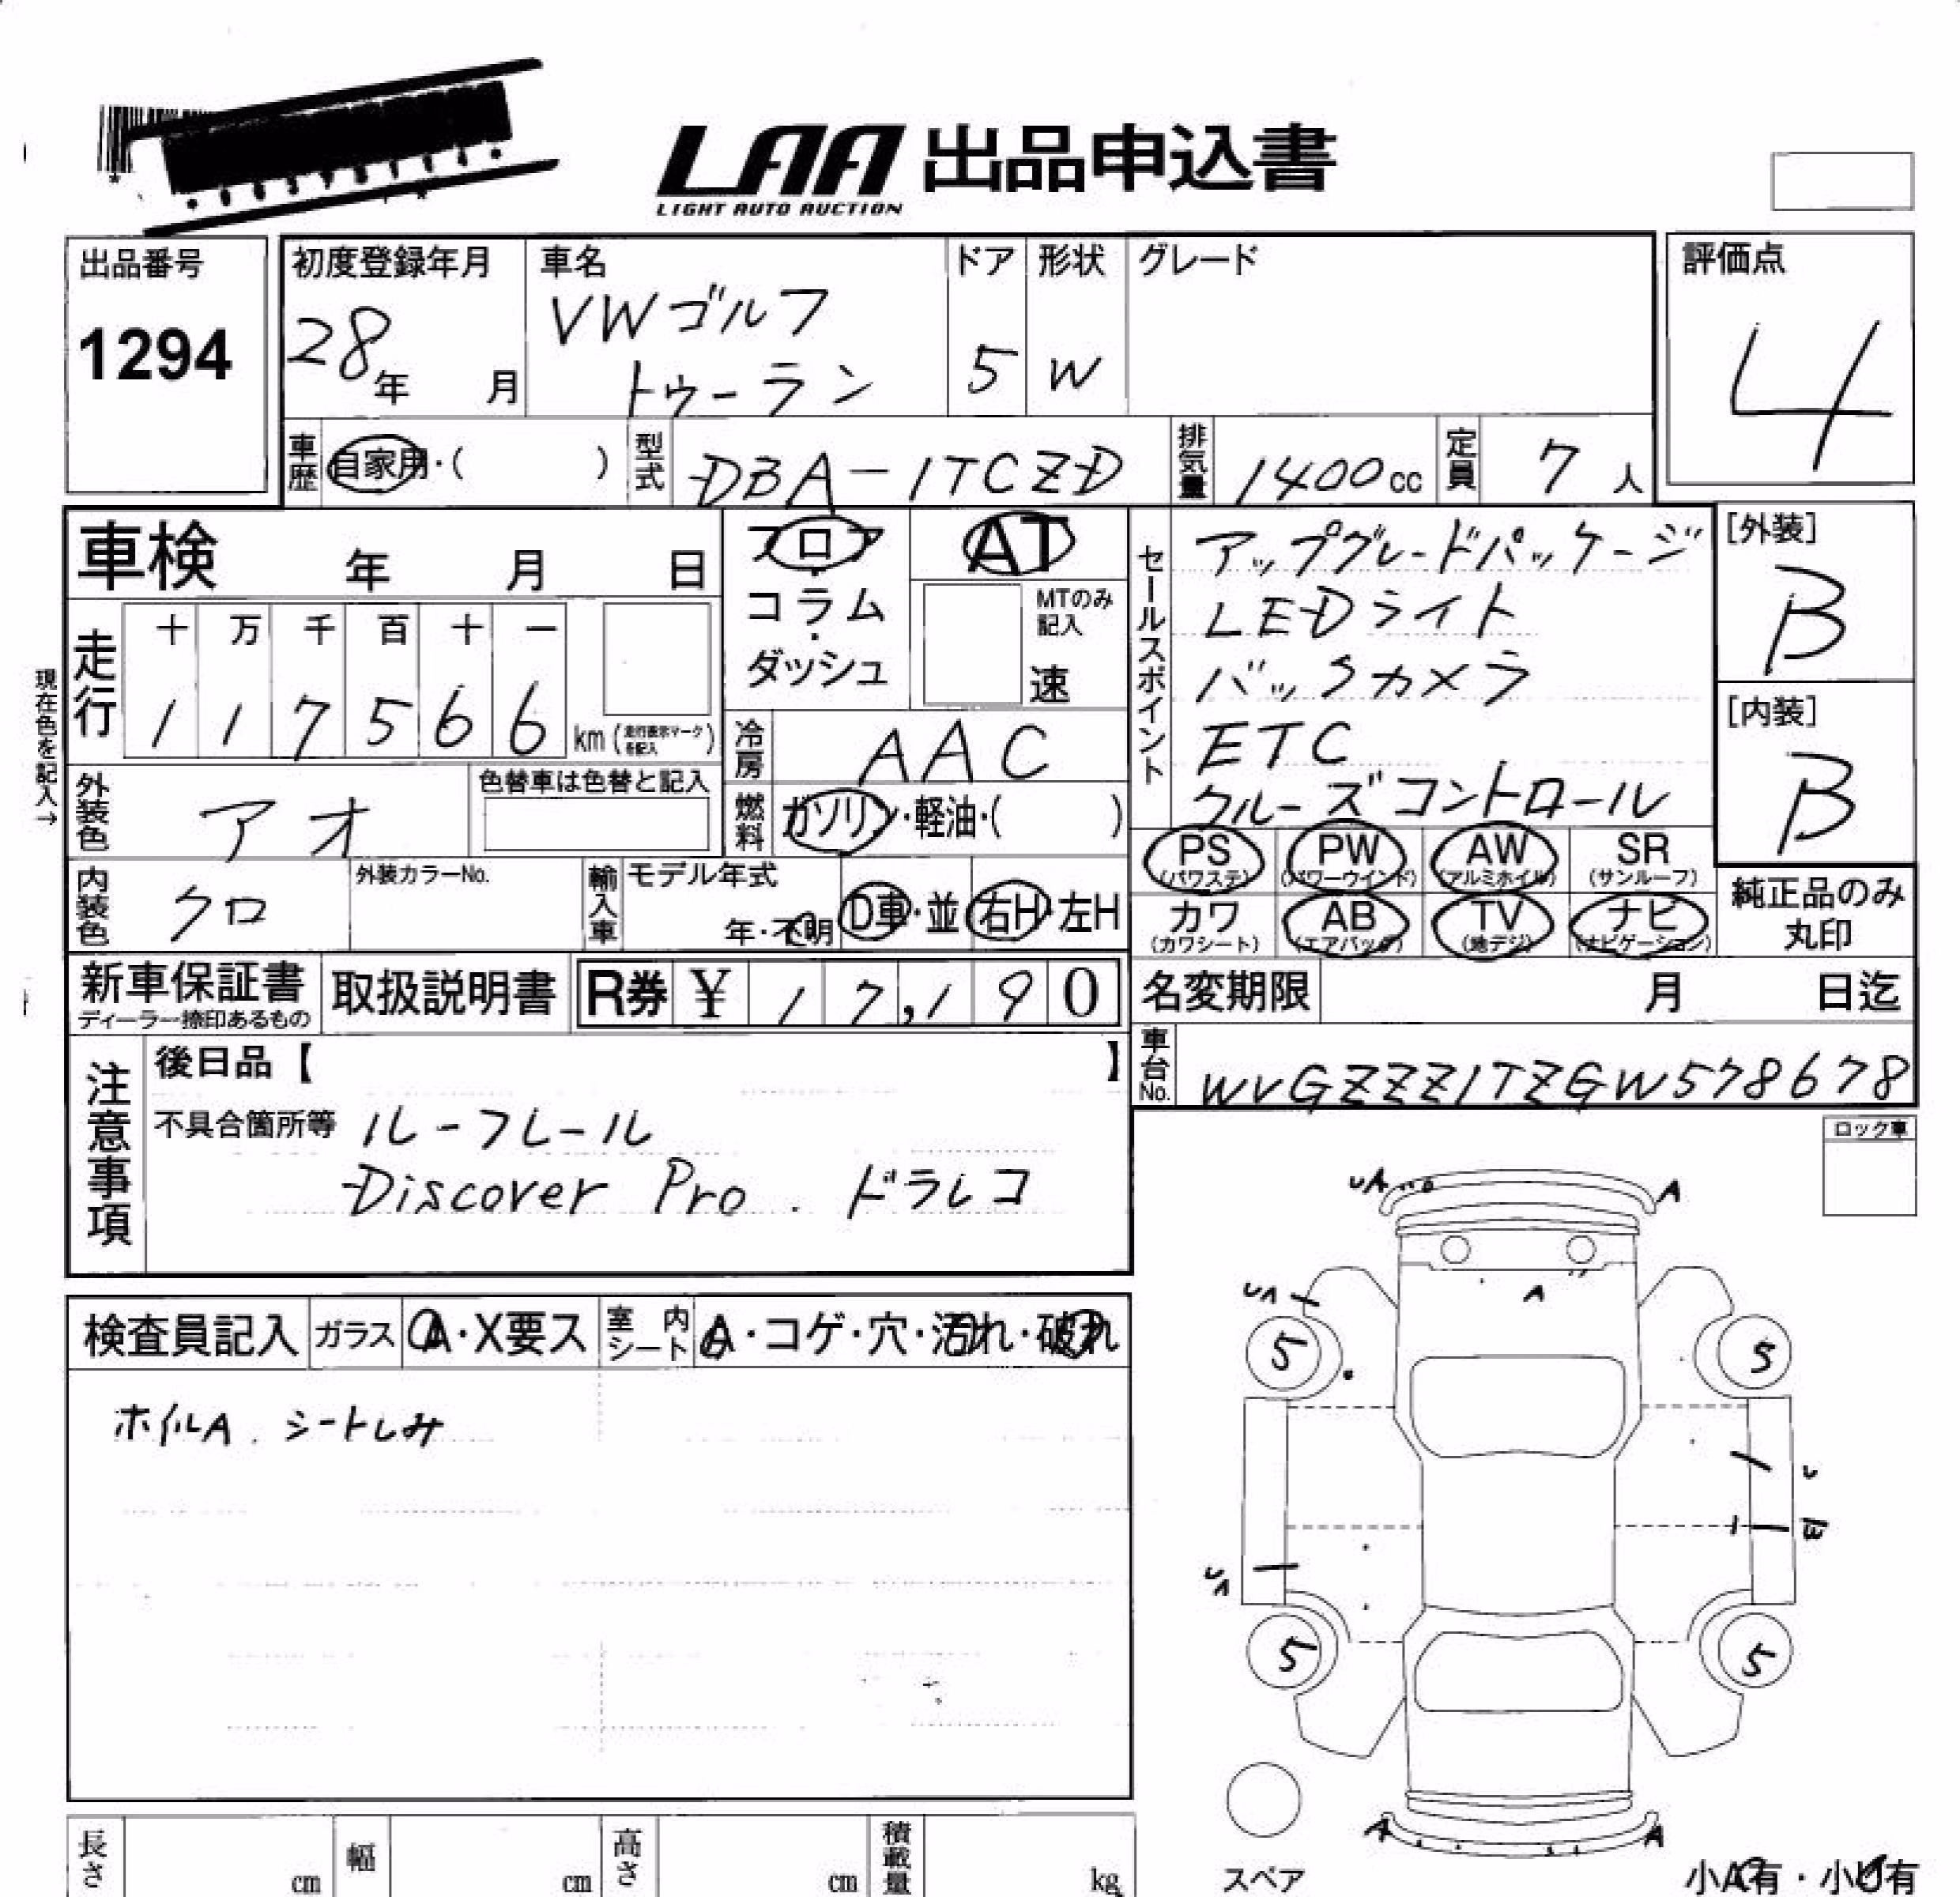 LAA 出品申込書
LIGHT AUTO AUCTION
出品番号
1294
初度登録年月
28年 月
車名
VWゴルフ
トゥーラン
ドア
5
形状
W
グレード
評価点
4
車歴 自家用・( )
型式 DBA-1TCZD
排気量 1400cc
定員 7人
車検 年 月 日
フロア・コラム・ダッシュ
AT
MTのみ記入
速
セールスポイント
アップグレードパッケージ
LEDライト
バックカメラ
ETC
クルーズコントロール
[外装]
B
[内装]
B
現在色を記入→
走行
十 万 千 百 十 一
1 1 7 5 6 6 km (走行表示マークを記入)
冷房 AAC
外装色 アオ
色替車は色替と記入
燃料 ガソリン・軽油・( )
PS (パワステ)
PW (パワーウインド)
AW (アルミホイル)
SR (サンルーフ)
カワ (カワシート)
AB (エアバッグ)
TV (地デジ)
ナビ (ナビゲーション)
純正品のみ丸印
内装色 クロ
外装カラーNo.
輸入車
モデル年式
年・不明
D車・並
右H・左H
新車保証書
ディーラー捺印あるもの
取扱説明書
R券 ¥ 17,190
名変期限 月 日迄
車台No. WVGZZZ1TZGW578678
注意事項
後日品【 】
不具合箇所等 ルーフレール
Discover Pro . ドラレコ
ロック車
検査員記入
ガラス A・X要ス
室内シート A・コゲ・穴・汚れ・破れ
ホイルA . シートしみ
UA
A
UA
A
5
5
U
W
UA
5
5
A
A
スペア
小A有・小U有
長さ cm
幅 cm
高さ cm
積載量 kg